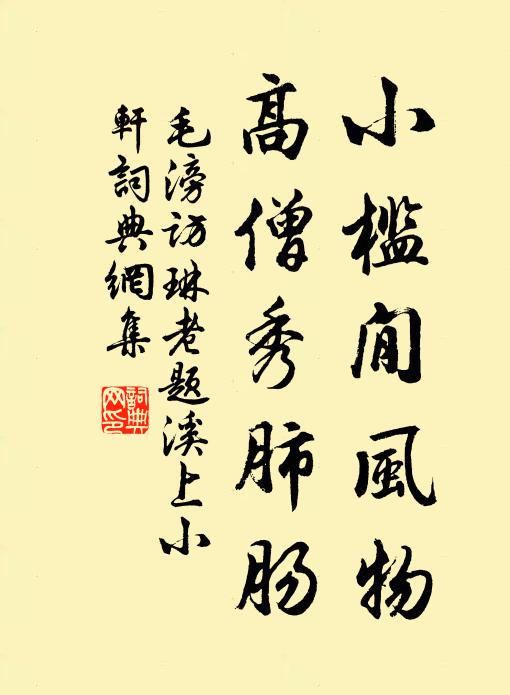 小槛闲風物
高僧秀肺肠
毛滂访琳老题溪上小
軒詞典網集
詞典
网印